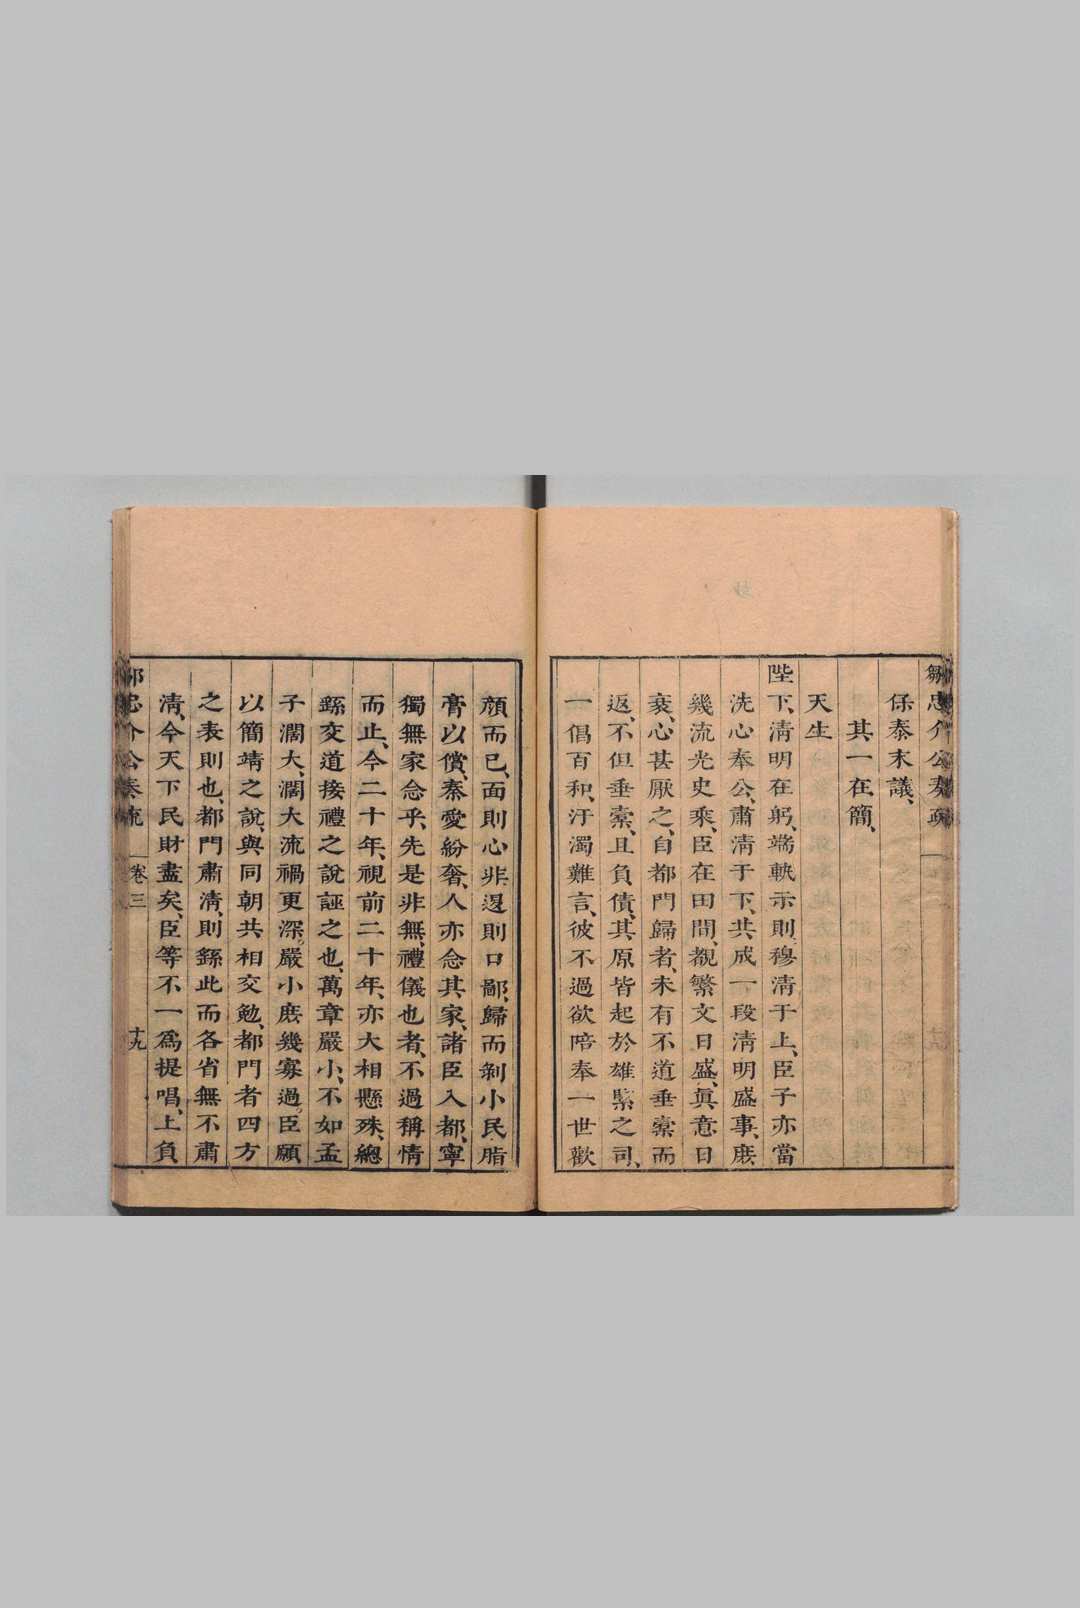 鄒忠介公奏疏
保泰末議、
其一在簡、
天生
陛下、清明在躬、端軌示則、穆清于上、臣子亦當
洗心奉公、肅清于下、共成一段清明盛事、庶
幾流光史乘、臣在田間、覩繁文日盛、眞意日
衰、心甚厭之、自都門歸者、未有不道垂橐而
返、不但垂橐、且負債、其原皆起於雄緊之司、
一倡百和、汙濁難言、彼不過欲陪奉一世歡
顔而已、面則心非、退則口鄙、歸而剝小民脂
膏以償、秦愛紛奢、人亦念其家、諸臣入都、寧
獨無家念乎、先是非無禮儀也者、不過稱情
而止、今二十年、視前二十年、亦大相懸殊、總
繇交道接禮之說誣之也、萬章嚴小、不如孟
子濶大、濶大流禍更深。嚴小庶幾寡過。臣願
以簡靖之說、與同朝共相交勉、都門者四方
之表則也、都門肅清、則繇此而各省無不肅
清、今天下民財盡矣、臣等不一爲提唱、上負
鄒忠介公奏疏 卷三 十九